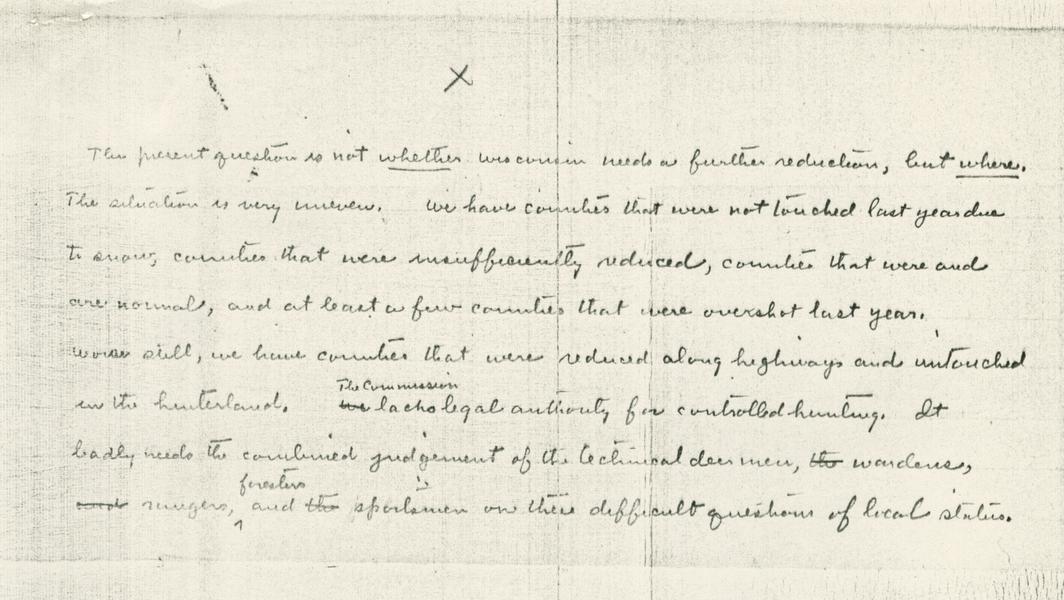 X
The present question is not whether wisconsin needs a further reduction, but where.
The situation is very uneven. We have counties that were not touched last year due
to snow, counties that were insufficiently reduced, counties that were and
are normal, and at least a few counties that were overshot last year.
worse still, we have counties that were reduced along highways and untouched
in the hinterland. we The Commission lacks legal authority for controlled hunting. It
badly needs the combined judgement of the technical deer men, the wardens,
and rangers, foresters and the sportsmen on these difficult questions of local status.